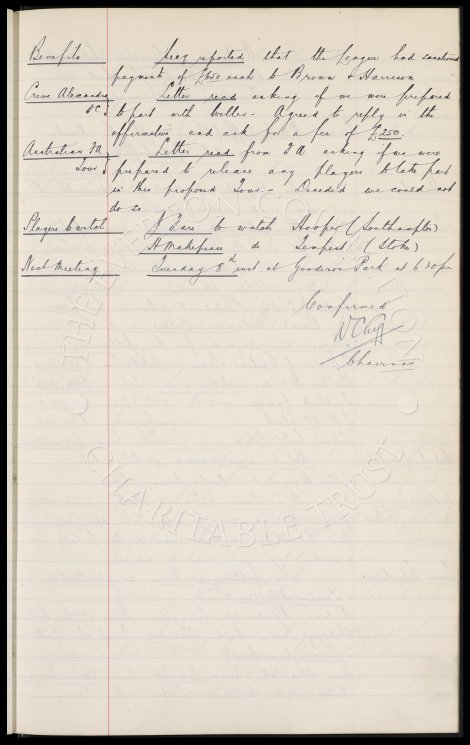 Benefits Secy reported that the League had sanctioned
payments of £650 each to Brown & Harrison
Crewe Alexandra Letter read asking if we were prepared
FC to part with Weller - Agreed to reply in the
affirmative and ask for a fee of £250.
Australian FA Letter read from FA asking if we were
Tour prepared to release any players to take part
in their proposed Tour. - Decided we could not
do so.
Players to watch J Fare to watch Hooper (Southampton)
H Makepeace do Sempest (Stoke)
Next Meeting Tuesday 8th inst at Goodison Park at 6.30pm
Confirmed
W.C.Cuff
Chairman
THE EVERTON COLLECTION
CHARITABLE TRUST